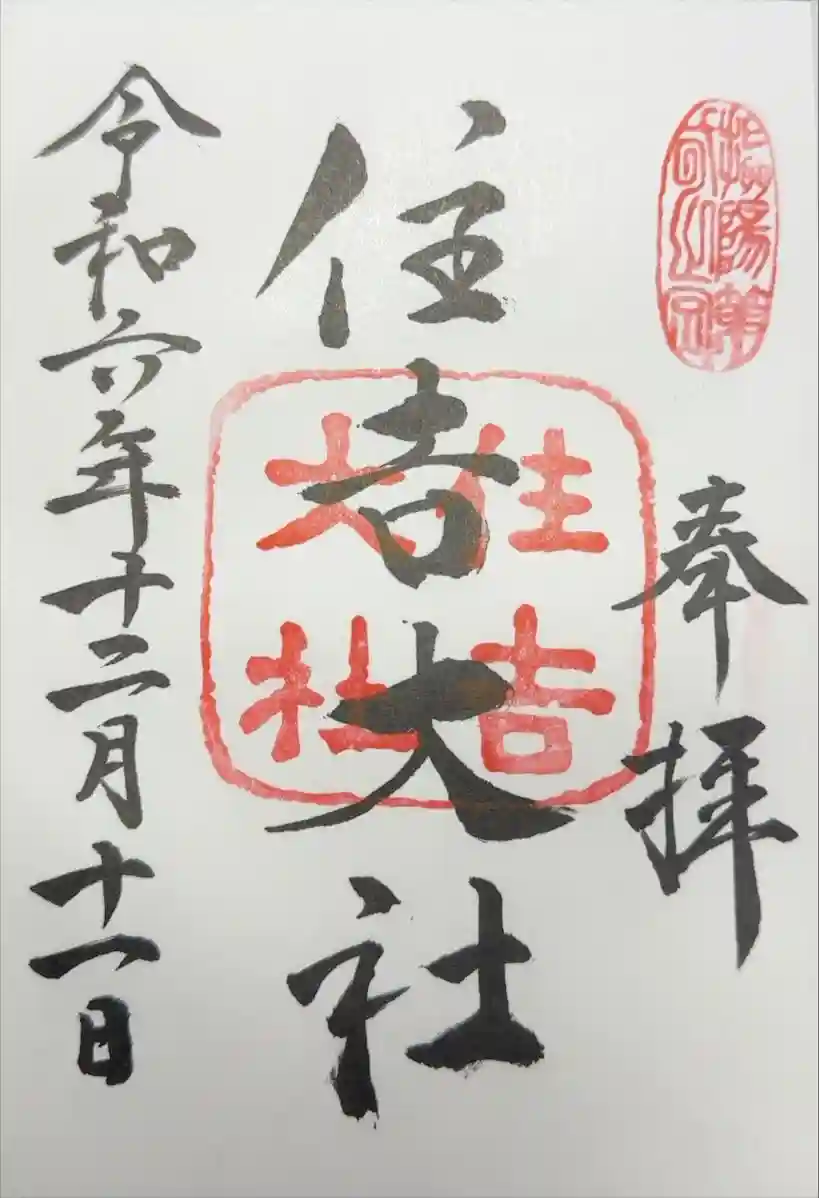 奉拝
住吉大社
令和六年十二月十一日
住吉
大社